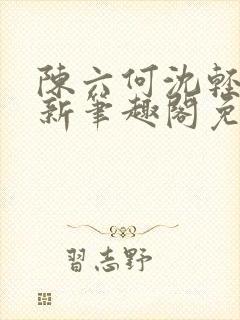 陳六何沈輕
新筆趣閣免
習志野